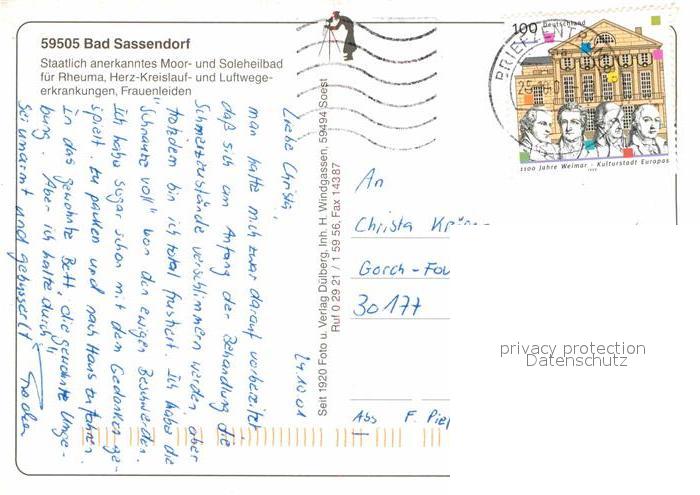 59505 Bad Sassendorf
Staatlich anerkanntes Moor- und Soleheilbad
für Rheuma, Herz-Kreislauf- und Luftwege-
erkrankungen, Frauenleiden
24.10.01
Liebe Christa,
man hatte mich zwar darauf vorbereitet
daß sich am Anfang der Behandlung die
Schmerzzustände verschlimmern werden aber
trotzdem bin ich total frustriert. Ich habe die
"Schnauze voll" von den ewigen Beschwerden.
Ich habe sogar schon mit dem Gedanken ge-
spielt, zu packen und nach Haus zu fahren.
In das gewohnte Bett, die gewohnte Umge-
bung. Aber ich halte durch!
Sei umarmt und gebusserlt
Seit 1920 Foto u. Verlag Dülberg, Inh. H. Windgassen, 59494 Soest
Ruf 0 29 21 / 1 59 56, Fax 14387
100 Deutschland
BRIEFZENTR
1100 Jahre Weimar · Kulturstadt Europas
1999
An
Christa
Gorch-Fo
30177
Abs F. Piep
privacy protection
Datenschutz